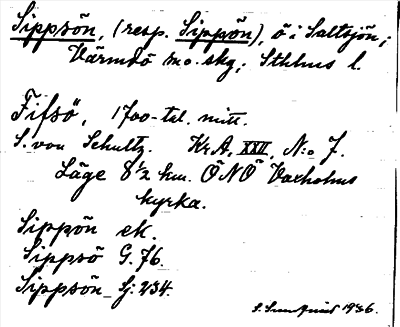 Sippsön, (resp. Sippön), ö i Saltsjön;
Värmdö m.o. skg; Sthlms l.
Fifsö, 1700-tal. mitt.
S. von Schultz. Kr.A, XXII, N:o 7.
Läge 8½ km. ÖNÖ Vaxholms
kyrka.
Sippön ek.
Sippsö G. 76.
Sippsön Sj. 234.
S. Sundquist 1936.